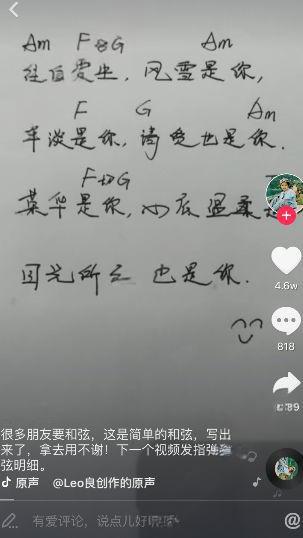 Am F G Am
往日爱坐,风雪是你,
F G Am
平淡是你,清贫也是你.
F G
荣华是你,心底温柔是
目光所至 也是你.
4.6w
818
很多朋友要和弦,这是简单的和弦,写出
来了,拿去用不谢!下一个视频发指弹
弦明细。
原声 @Leo良创作的原声
有爱评论,说点儿好听的~